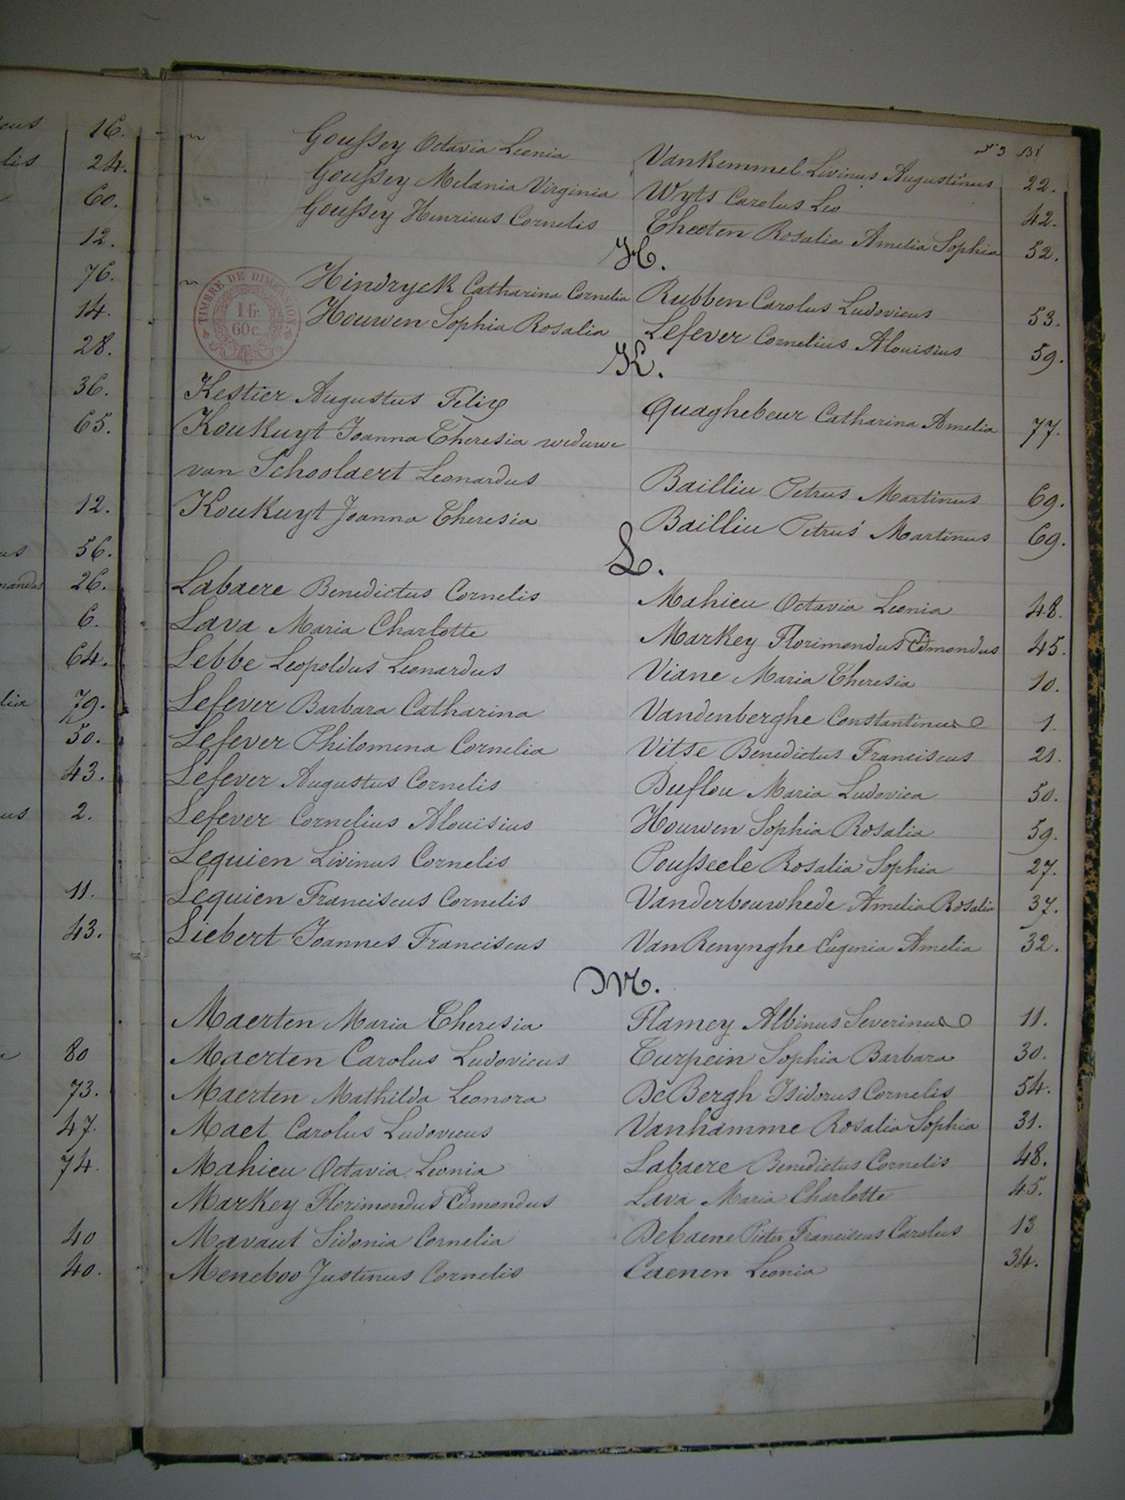 Goussey Octavia Leonia VanKemmel Livinus Augustinus 22.
Goussey Melania Virginia Wyts Carolus Leo 42.
Goussey Henricus Cornelis Theeten Rosalia Amelia Sophia 52.
H.
Hindryck Catharina Cornelia Rubben Carolus Ludovicus 53.
TIMBRE DE DIMENSION
1 fr.
60 c.
Houwen Sophia Rosalia Lefever Cornelius Alouisius 59.
K.
Kestier Augustus Felix Quaghebeur Catharina Amelia 77.
Koukuyt Joanna Theresia weduwe
van Schoolaert Leonardus Bailliu Petrus Martinus 69.
Koukuyt Joanna Theresia Bailliu Petrus Martinus 69.
L.
Labaere Benedictus Cornelis Mahieu Octavia Leonia 48.
Lava Maria Charlotte Markey Florimondus Edmondus 45.
Lebbe Leopoldus Leonardus Viane Maria Theresia 10.
Lefever Barbara Catharina Vandenberghe Constantinus 1.
Lefever Philomena Cornelia Vitse Benedictus Franciscus 21.
Lefever Augustus Cornelis Duflou Maria Ludovica 50.
Lefever Cornelius Alouisius Houwen Sophia Rosalia 59.
Lequien Livinus Cornelis Pousseele Rosalia Sophia 27.
Lequien Franciscus Cornelis Vanderbouwhede Amelia Rosalia 37.
Liebert Joannes Franciscus VanRenynghe Eugenia Amelia 32.
M.
Maerten Maria Theresia Flamey Albinus Severinus 11.
Maerten Carolus Ludovicus Turpein Sophia Barbara 30.
Maerten Mathilda Leonora DeBergh Isidorus Cornelis 54.
Maet Carolus Ludovicus Vanhamme Rosalia Sophia 31.
Mahieu Octavia Leonia Labaere Benedictus Cornelis 48.
Markey Florimondus Edmondus Lava Maria Charlotte 45.
Mavaut Sidonia Cornelia Debaene Pieter Franciscus Carolus 13
Meneboo Justinus Cornelis Caenen Leonia 34.
16.
24.
60.
12.
76.
14.
28.
36.
65.
12.
56.
26.
6.
64.
79.
50.
43.
2.
11.
43.
80
73.
47.
74.
40
40.